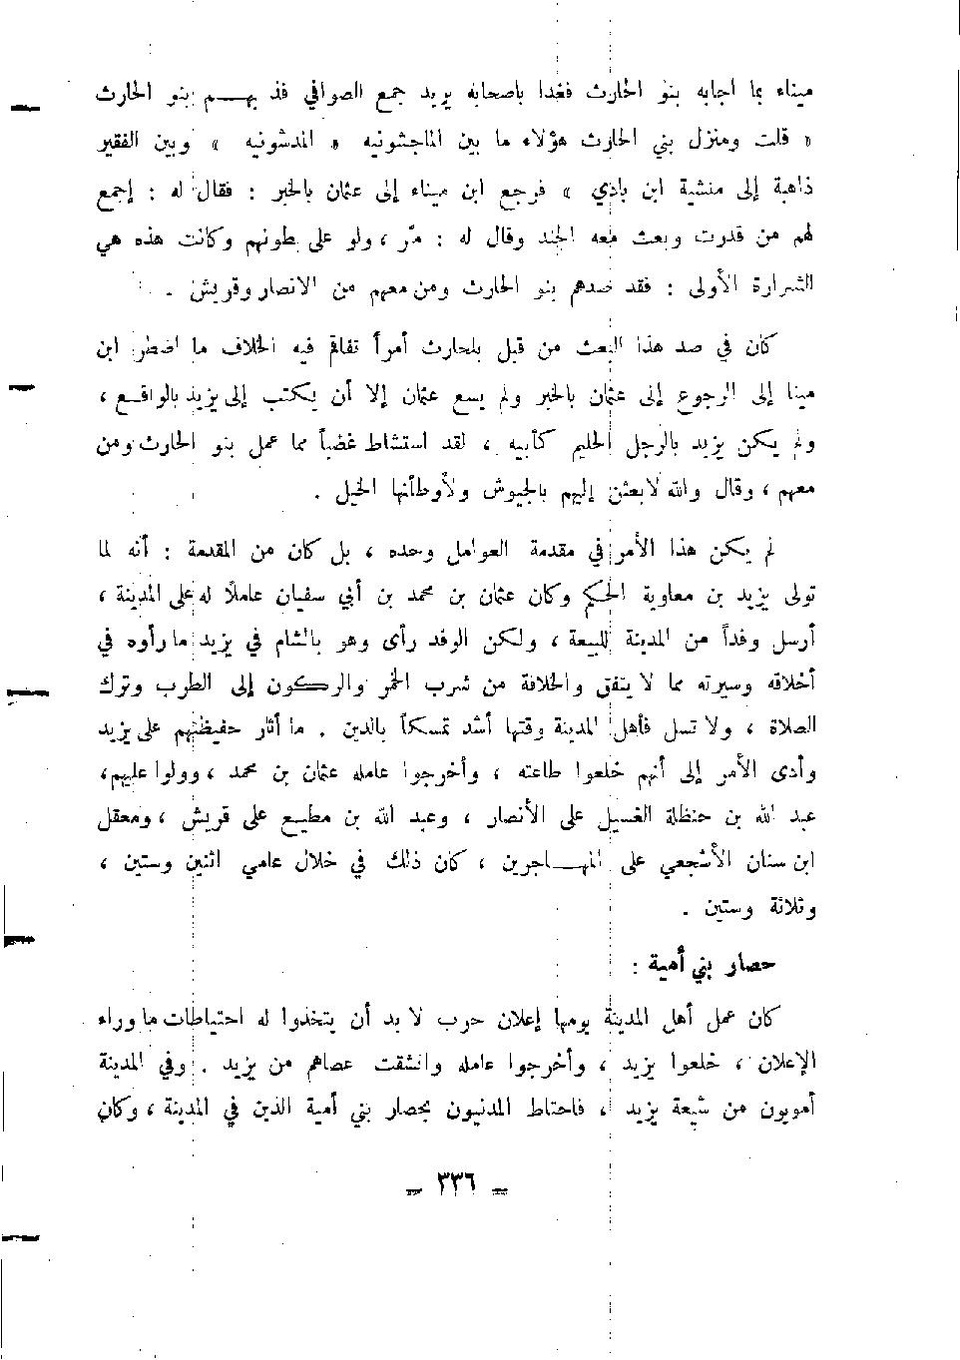 ميناء بما اجابه بنو الحارث فغدا باصحابه يريد جمع الصوافي فذ بهـــم بنو الحارث
« قلت ومنزل بني الحارث هؤلاء ما بين الماجشونيه « المدشونيه » وبين الفقير
ذاهبة إلى منشية ابن بادي » فرجع ابن ميناء إلى عثمان بالخبر : فقال له : إجمع
لهم من قدرت وبعث معه الجند وقال له : مرّ ، ولو على بطونهم وكانت هذه هي
الشرارة الأولى : فقد صدهم بنو الحارث ومن معهم من الانصار وقريش .
كان في صد هذا البعث من قبل بلحارث أمراً تفاقم فيه الخلاف ما اضطر ابن
مينا إلى الرجوع إلى عثمان بالخبر ولم يسع عثمان إلا أن يكتب إلى يزيد بالواقع ،
ولم يكن يزيد بالرجل الحليم كأبيه ، لقد استشاط غضباً مما عمل بنو الحارث ومن
معهم ، وقال والله لابعثن إليهم بالجيوش ولأوطأنها الخيل .
لم يكن هذا الأمر في مقدمة العوامل وحده ، بل كان من المقدمة : أنه لما
تولى يزيد بن معاوية الحكم وكان عثمان بن محمد بن أبي سفيان عاملاً له على المدينة ،
أرسل وفداً من المدينة للبيعة ، ولكن الوفد رأى وهو بالشام في يزيد ما رأوه في
أخلاقه وسيرته مما لا يتفق والخلافة من شرب الخمر والركون إلى الطرب وترك
الصلاة ، ولا تسل فأهل المدينة وقتها أشد تمسكاً بالدين . ما أثار حفيظتهم على يزيد
وأدى الأمر إلى أنهم خلعوا طاعته ، وأخرجوا عامله عثمان بن محمد ، وولوا عليهم،
عبد الله بن حنظلة الغسيل على الأنصار ، وعبد الله بن مطيع على قريش ، ومعقل
ابن سنان الأشجعي على المهـــاجرين ، كان ذلك في خلال عامي اثنين وستين ،
وثلاثة وستين .
حصار بني أمية :
كان عمل أهل المدينة يومها إعلان حرب لا بد أن يتخذوا له احتياطات ما وراء
الإعلان ، خلعوا يزيد ، وأخرجوا عامله وانشقت عصاهم من يزيد . وفي المدينة
أمويون من شيعة يزيد ، فاحتاط المدنيون بحصار بني أمية الذين في المدينة ، وكان
_ ٣٣٦ _